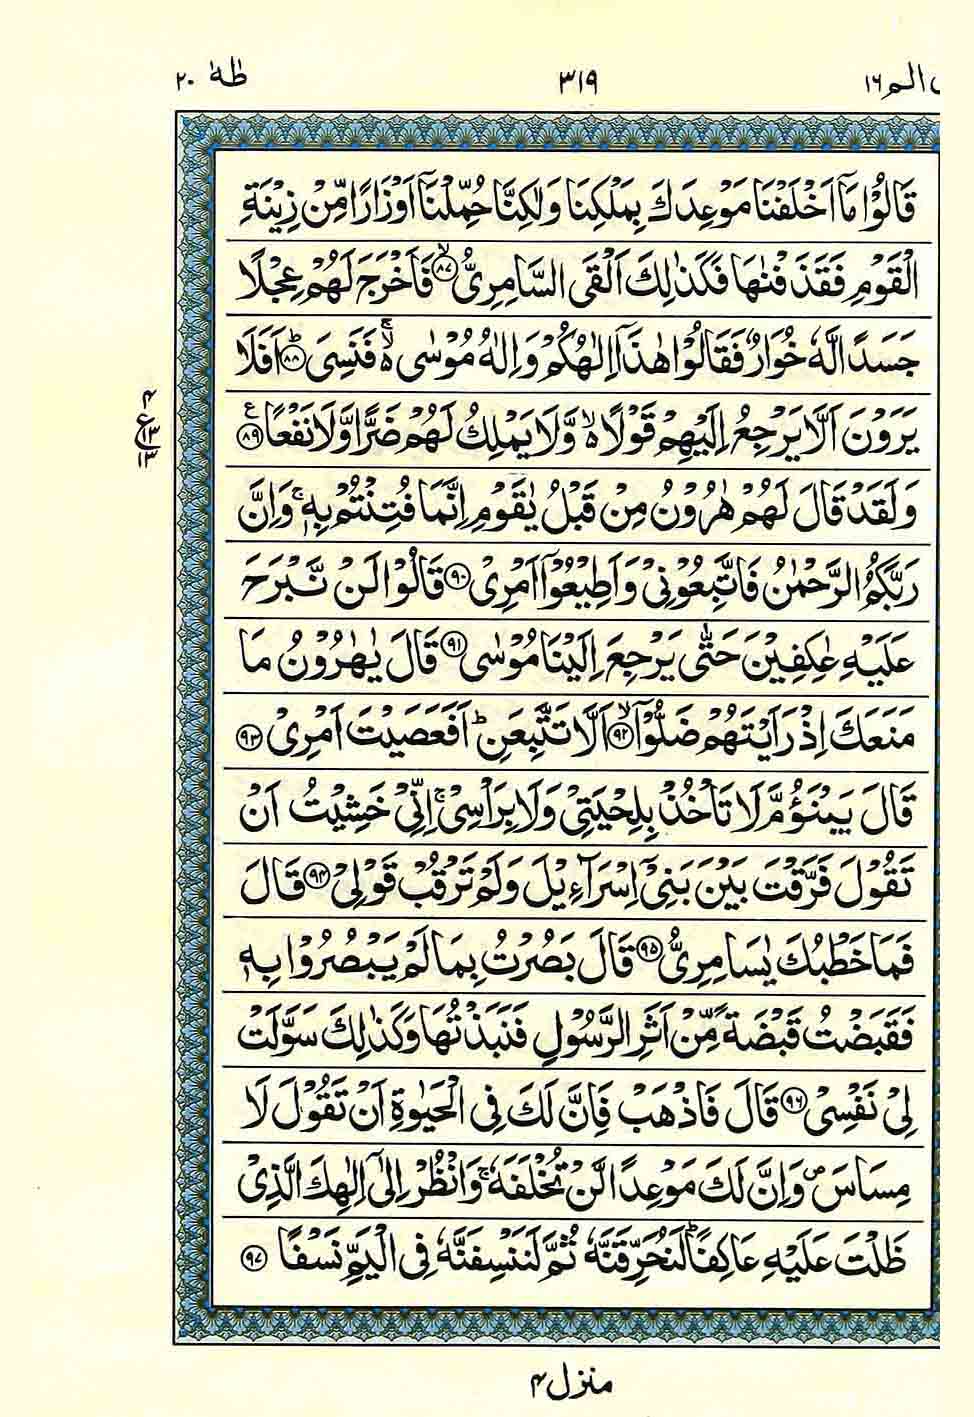 ال الم ١٦
٣١٩
طٰهٰ ٢٠
قَالُوْا مَآ اَخْلَفْنَا مَوْعِدَكَ بِمَلْكِنَا وَلٰكِنَّا حُمِّلْنَآ اَوْزَارًا مِّنْ زِيْنَةِ
الْقَوْمِ فَقَذَفْنٰهَا فَكَذٰلِكَ اَلْقَى السَّامِرِيُّ ۙ﴿٨٧﴾ فَاَخْرَجَ لَهُمْ عِجْلًا
جَسَدًا لَّهٗ خُوَارٌ فَقَالُوْا هٰذَآ اِلٰهُكُمْ وَاِلٰهُ مُوْسٰى ەۚ فَنَسِيَ ؕ﴿٨٨﴾ اَفَلَا
يَرَوْنَ اَلَّا يَرْجِعُ اِلَيْهِمْ قَوْلًا ەۙ وَّلَا يَمْلِكُ لَهُمْ ضَرًّا وَّلَا نَفْعًا ﴿٨٩﴾ ع
٤
ع ١٣
١٣
وَلَقَدْ قَالَ لَهُمْ هٰرُوْنُ مِنْ قَبْلُ يٰقَوْمِ اِنَّمَا فُتِنْتُمْ بِهٖ ۚ وَاِنَّ
رَبَّكُمُ الرَّحْمٰنُ فَاتَّبِعُوْنِيْ وَاَطِيْعُوْٓا اَمْرِيْ ﴿٩٠﴾ قَالُوْا لَنْ نَّبْرَحَ
عَلَيْهِ عٰكِفِيْنَ حَتّٰى يَرْجِعَ اِلَيْنَا مُوْسٰى ﴿٩١﴾ قَالَ يٰهٰرُوْنُ مَا
مَنَعَكَ اِذْ رَاَيْتَهُمْ ضَلُّوْٓا ۙ﴿٩٢﴾ اَلَّا تَتَّبِعَنِ ؕ اَفَعَصَيْتَ اَمْرِيْ ﴿٩٣﴾
قَالَ يَبْنَؤُمَّ لَا تَاْخُذْ بِلِحْيَتِيْ وَلَا بِرَاْسِيْ ۚ اِنِّيْ خَشِيْتُ اَنْ
تَقُوْلَ فَرَّقْتَ بَيْنَ بَنِيْٓ اِسْرَآءِيْلَ وَلَمْ تَرْقُبْ قَوْلِيْ ﴿٩٤﴾ قَالَ
فَمَا خَطْبُكَ يٰسَامِرِيُّ ﴿٩٥﴾ قَالَ بَصُرْتُ بِمَا لَمْ يَبْصُرُوْا بِهٖ
فَقَبَضْتُ قَبْضَةً مِّنْ اَثَرِ الرَّسُوْلِ فَنَبَذْتُهَا وَكَذٰلِكَ سَوَّلَتْ
لِيْ نَفْسِيْ ﴿٩٦﴾ قَالَ فَاذْهَبْ فَاِنَّ لَكَ فِي الْحَيٰوةِ اَنْ تَقُوْلَ لَا
مِسَاسَ ۪ وَاِنَّ لَكَ مَوْعِدًا لَّنْ تُخْلَفَهٗ ۚ وَانْظُرْ اِلٰٓى اِلٰهِكَ الَّذِيْ
ظَلْتَ عَلَيْهِ عَاكِفًا ؕ لَنُحَرِّقَنَّهٗ ثُمَّ لَنَنْسِفَنَّهٗ فِي الْيَمِّ نَسْفًا ﴿٩٧﴾
منزل ٤